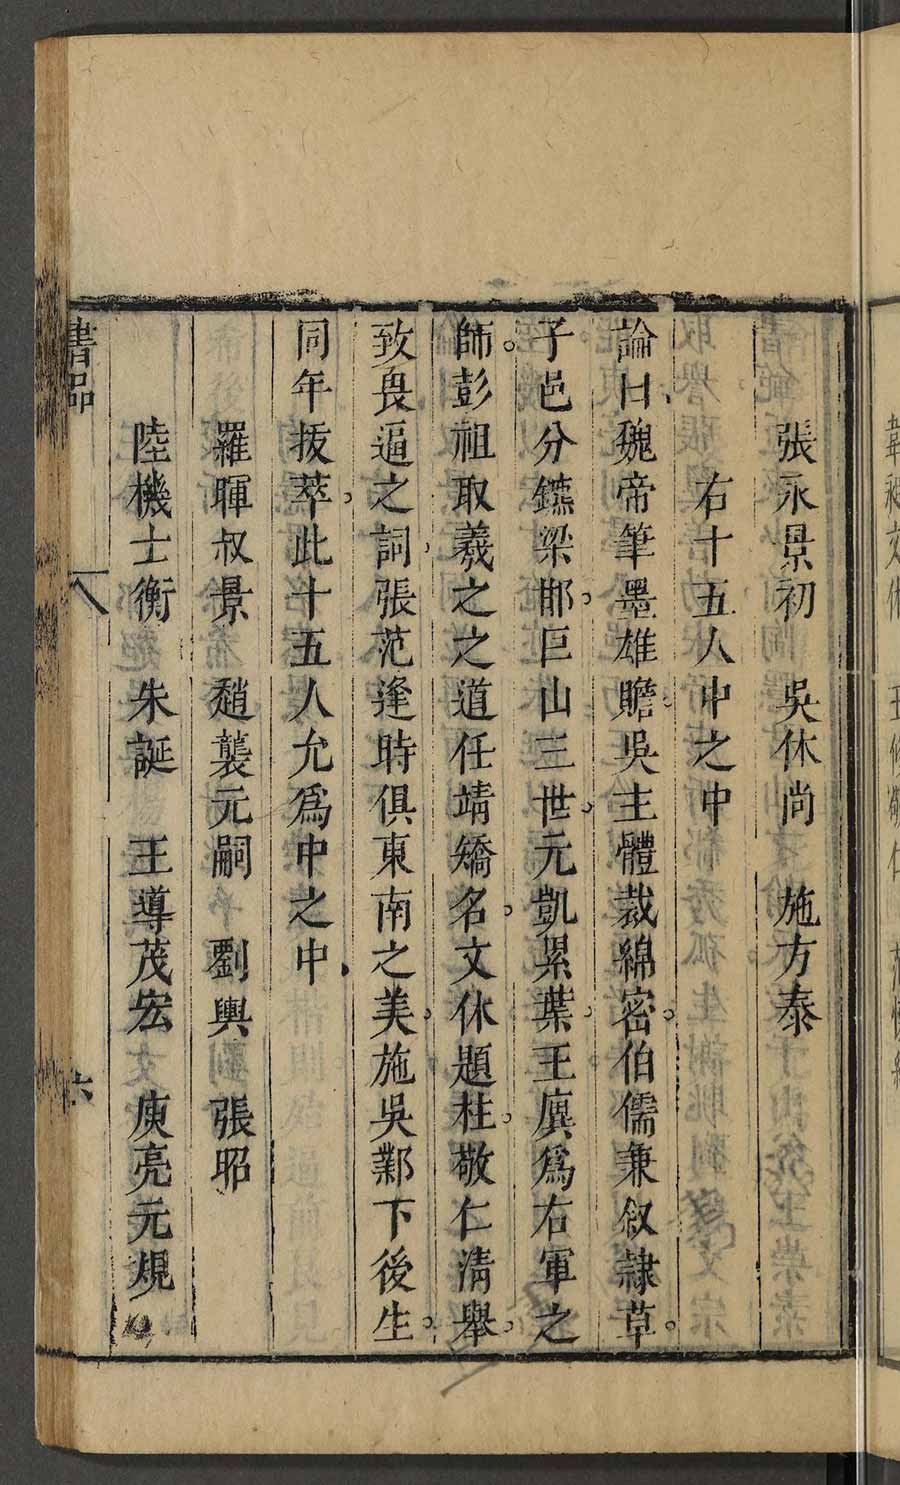 張永景初　吳休尚　施方泰
右十五人中之中
論曰魏帝筆墨雄贍吳主體裁綿密伯儒兼敘隸草
子邑分鑣梁邯巨山三世元凱累葉王廙為右軍之
師彭祖取羲之之道任靖矯名文休題柱敬仁清舉
致畏逼之詞張范逢時俱東南之美施吳鄴下後生
同年拔萃此十五人允為中之中
羅暉叔景　趙襲元嗣　劉輿　張昭
陸機士衡　朱誕　王導茂宏　庾亮元規
書品　八　六